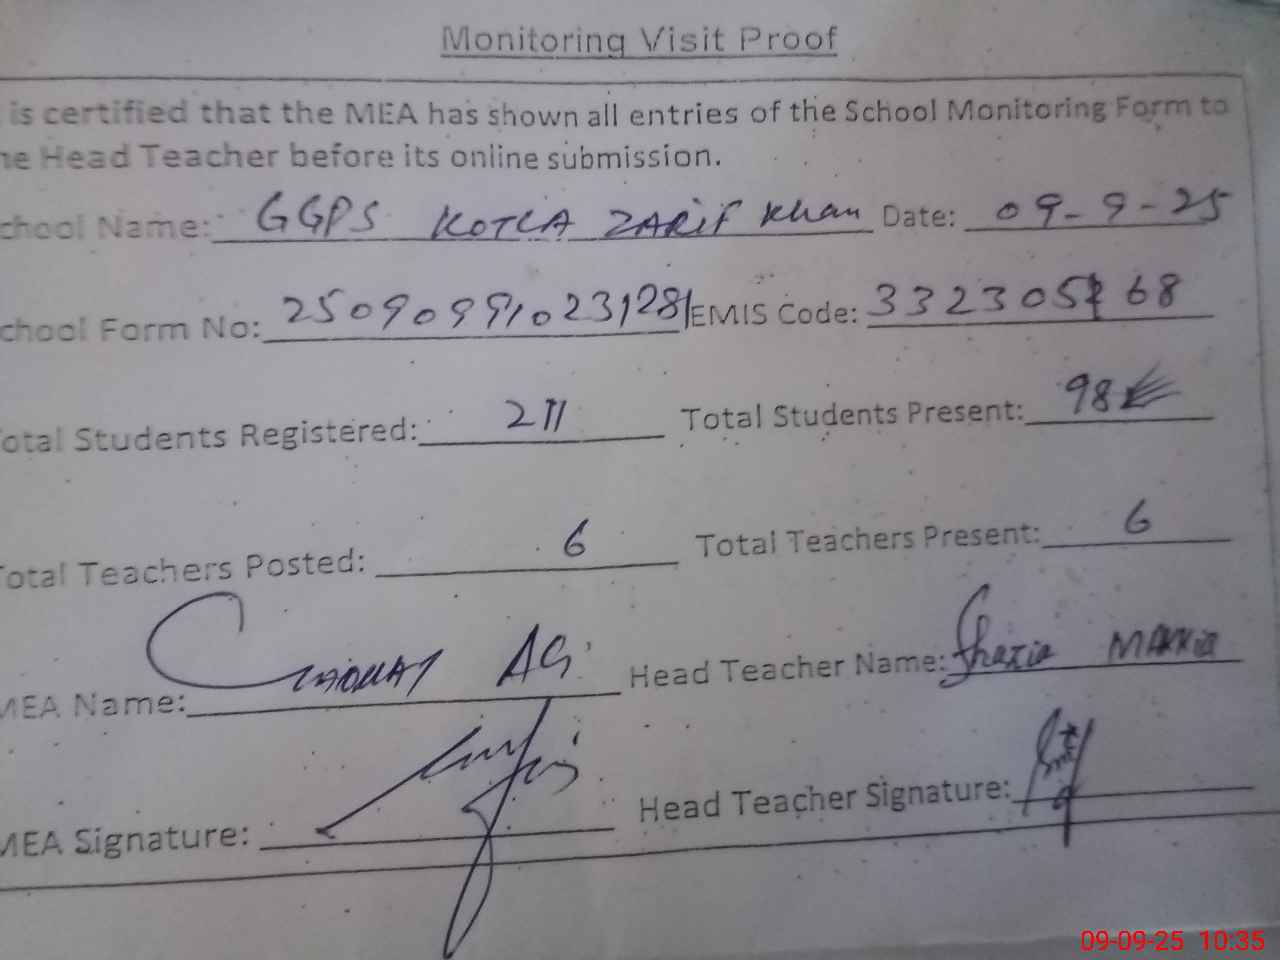 Monitoring Visit Proof
is certified that the MEA has shown all entries of the School Monitoring Form to
he Head Teacher before its online submission.
chool Name: GGPS KOTLA ZARIF Khan Date: 09-9-25
chool Form No: EMIS Code:
otal Students Registered: 211 Total Students Present: 98
Total Teachers Posted: 6 Total Teachers Present: 6
MEA Name: Head Teacher Name: Shazia
MEA Signature: Head Teacher Signature:
09-09-25 10:35